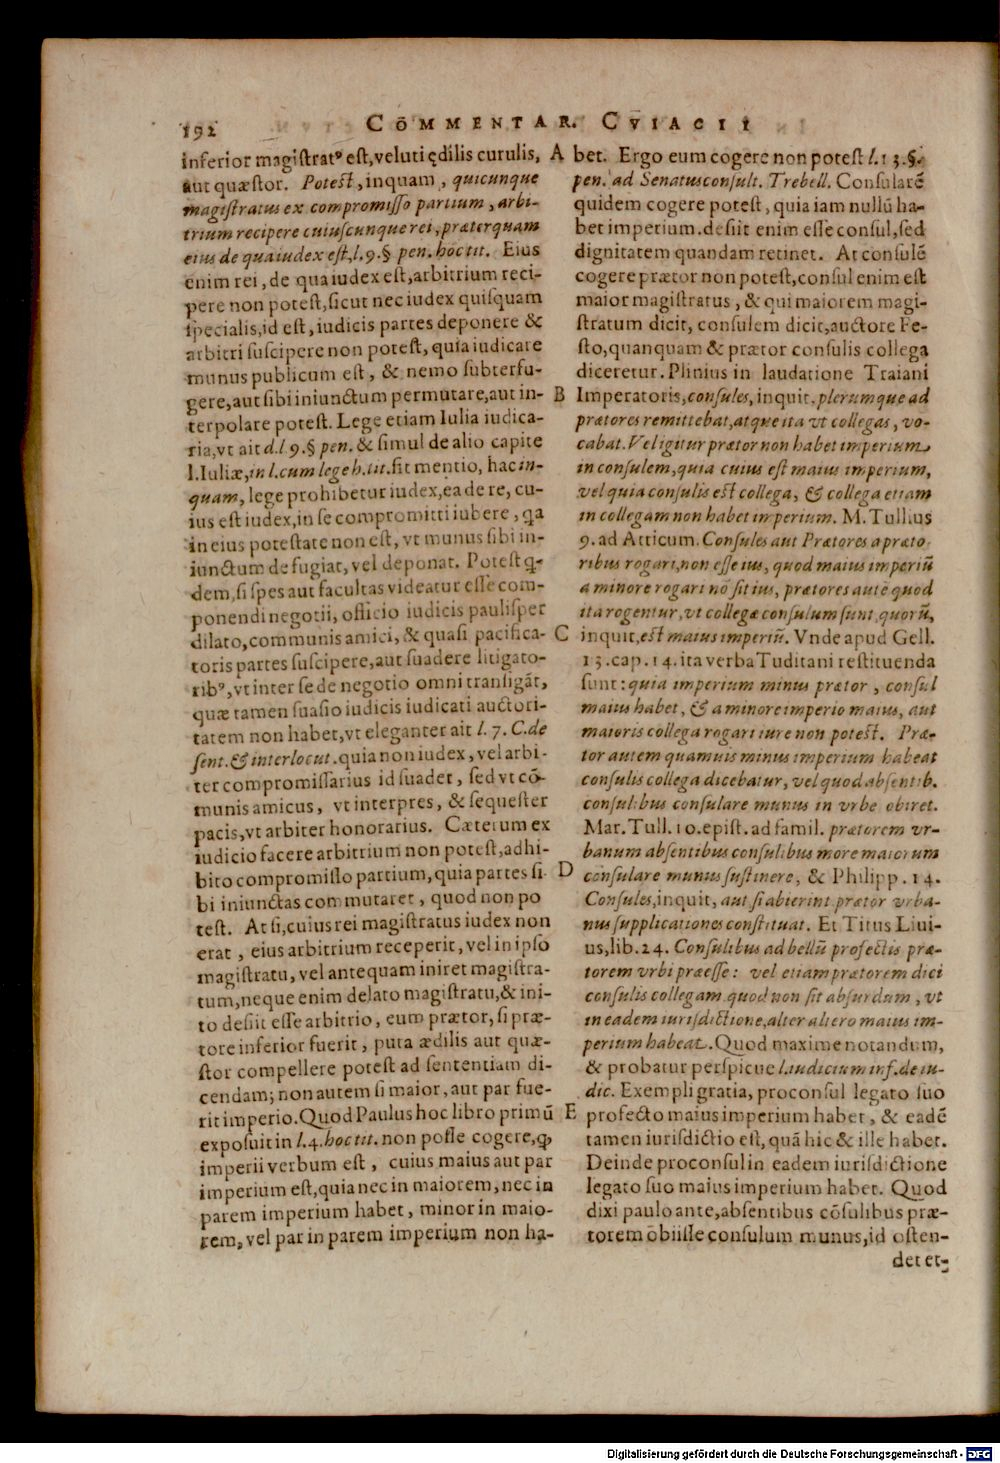 192
COMMENTAR. CVIACII
inferior magistratꝰ est, veluti ędilis curulis,
aut quæstor. Potest, inquam, quicunque
magistratus ex compromisso partium, arbi-
trium recipere cuiuscunque rei, præterquam
eius de qua iudex est, l. 9. § pen. hoc tit. Eius
enim rei, de qua iudex est, arbitrium reci-
pere non potest, sicut nec iudex quisquam
specialis, id est, iudicis partes deponere &
arbitri suscipere non potest, quia iudicare
munus publicum est, & nemo subterfu-
gere, aut sibi iniunctum permutare, aut in-
terpolare potest. Lege etiam Iulia iudica-
ria, vt ait d. l. 9. § pen. & simul de alio capite
l. Iuliæ, in l. cum lege h. tit. fit mentio, hac in-
quam, lege prohibetur iudex, ea de re, cu-
ius est iudex, in se compromitti iubere, qa
in eius potestate non est, vt munus sibi in-
iunctum defugiat, vel deponat. Potest q-
dem, si spes aut facultas videatur esse com-
ponendi negotii, officio iudicis paulisper
dilato, communis amici, & quasi pacifica-
toris partes suscipere, aut suadere litigato-
ribꝰ, vt inter se de negotio omni transigãt,
quæ tamen suasio iudicis iudicati auctori-
tatem non habet, vt eleganter ait l. 7. C. de
sent. & interlocut. quia non iudex, vel arbi-
ter compromissarius id suadet, sed vt cõ-
munis amicus, vt interpres, & sequester
pacis, vt arbiter honorarius. Cæterum ex
iudicio facere arbitrium non potest, adhi-
bito compromisso partium, quia partes si-
bi iniunctas commutaret, quod non po
test. At si, cuius rei magistratus iudex non
erat, eius arbitrium receperit, vel in ipso
magistratu, vel antequam iniret magistra-
tum, neque enim delato magistratu, & ini-
to desiit esse arbitrio, eum prætor, si præ-
tore inferior fuerit, puta ædilis aut quæ-
stor compellere potest ad sententiam di-
cendam; non autem si maior, aut par fue-
rit imperio. Quod Paulus hoc libro primũ
exposuit in l. 4. hoc tit. non posse cogere, ꝙ
imperii verbum est, cuius maius aut par
imperium est, quia nec in maiorem, nec in
parem imperium habet, minor in maio-
rem, vel par in parem imperium non ha-
A
B
C
D
E
bet. Ergo eum cogere non potest l. 13. §.
pen. ad Senatusconsult. Trebell. Consularẽ
quidem cogere potest, quia iam nullũ ha-
bet imperium. desiit enim esse consul, sed
dignitatem quandam retinet. At consulẽ
cogere prætor non potest, consul enim est
maior magistratus, & qui maiorem magi-
stratum dicit, consulem dicit, auctore Fe-
sto, quanquam & prætor consulis collega
diceretur. Plinius in laudatione Traiani
Imperatoris, consules, inquit, plerumque ad
prætores remittebat, atque ita vt collegas, vo-
cabat. Vel igitur prætor non habet imperium
in consulem, quia cuius est maius imperium,
vel quia consulis est collega, & collega etiam
in collegam non habet imperium. M. Tullius
9. ad Atticum. Consules aut Prætores a præto
ribus rogari, non esse ius, quod maius imperiũ
a minore rogari nõ sit ius, prætores autẽ quod
ita rogentur, vt collegæ consulum sunt, quorũ,
inquit, est maius imperiũ. Vnde apud Gell.
13. cap. 14. ita verba Tuditani restituenda
sunt: quia imperium minus prætor, consul
maius habet, & a minore imperio maius, aut
maioris collega rogari iure non potest. Præ-
tor autem quamuis minus imperium habeat
consulis collega dicebatur, vel quod absentib.
consulibus consulare munus in vrbe obiret.
Mar. Tull. 10. epist. ad famil. prætorem vr-
banum absentibus consulibus more maiorum
consulare munus sustinere, & Philipp. 14.
Consules, inquit, aut si abierint prætor vrba-
nus supplicationes constituat. Et Titus Liui-
us, lib. 24. Consulibus ad bellũ profectis præ-
torem vrbi præesse: vel etiam prætorem dici
consulis collegam. quod non sit absurdum, vt
in eadem iurisdictione, alter altero maius im-
perium habeat. Quod maxime notandum,
& probatur perspicue l. iudicium inf. de iu-
dic. Exempli gratia, proconsul legato suo
profecto maius imperium habet, & eadẽ
tamen iurisdictio est, quã hic & ille habet.
Deinde proconsul in eadem iurisdictione
legato suo maius imperium habet. Quod
dixi paulo ante, absentibus cõsulibus præ-
torem obiisse consulum munus, id osten-
det et-
Digitalisierung gefördert durch die Deutsche Forschungsgemeinschaft - DFG